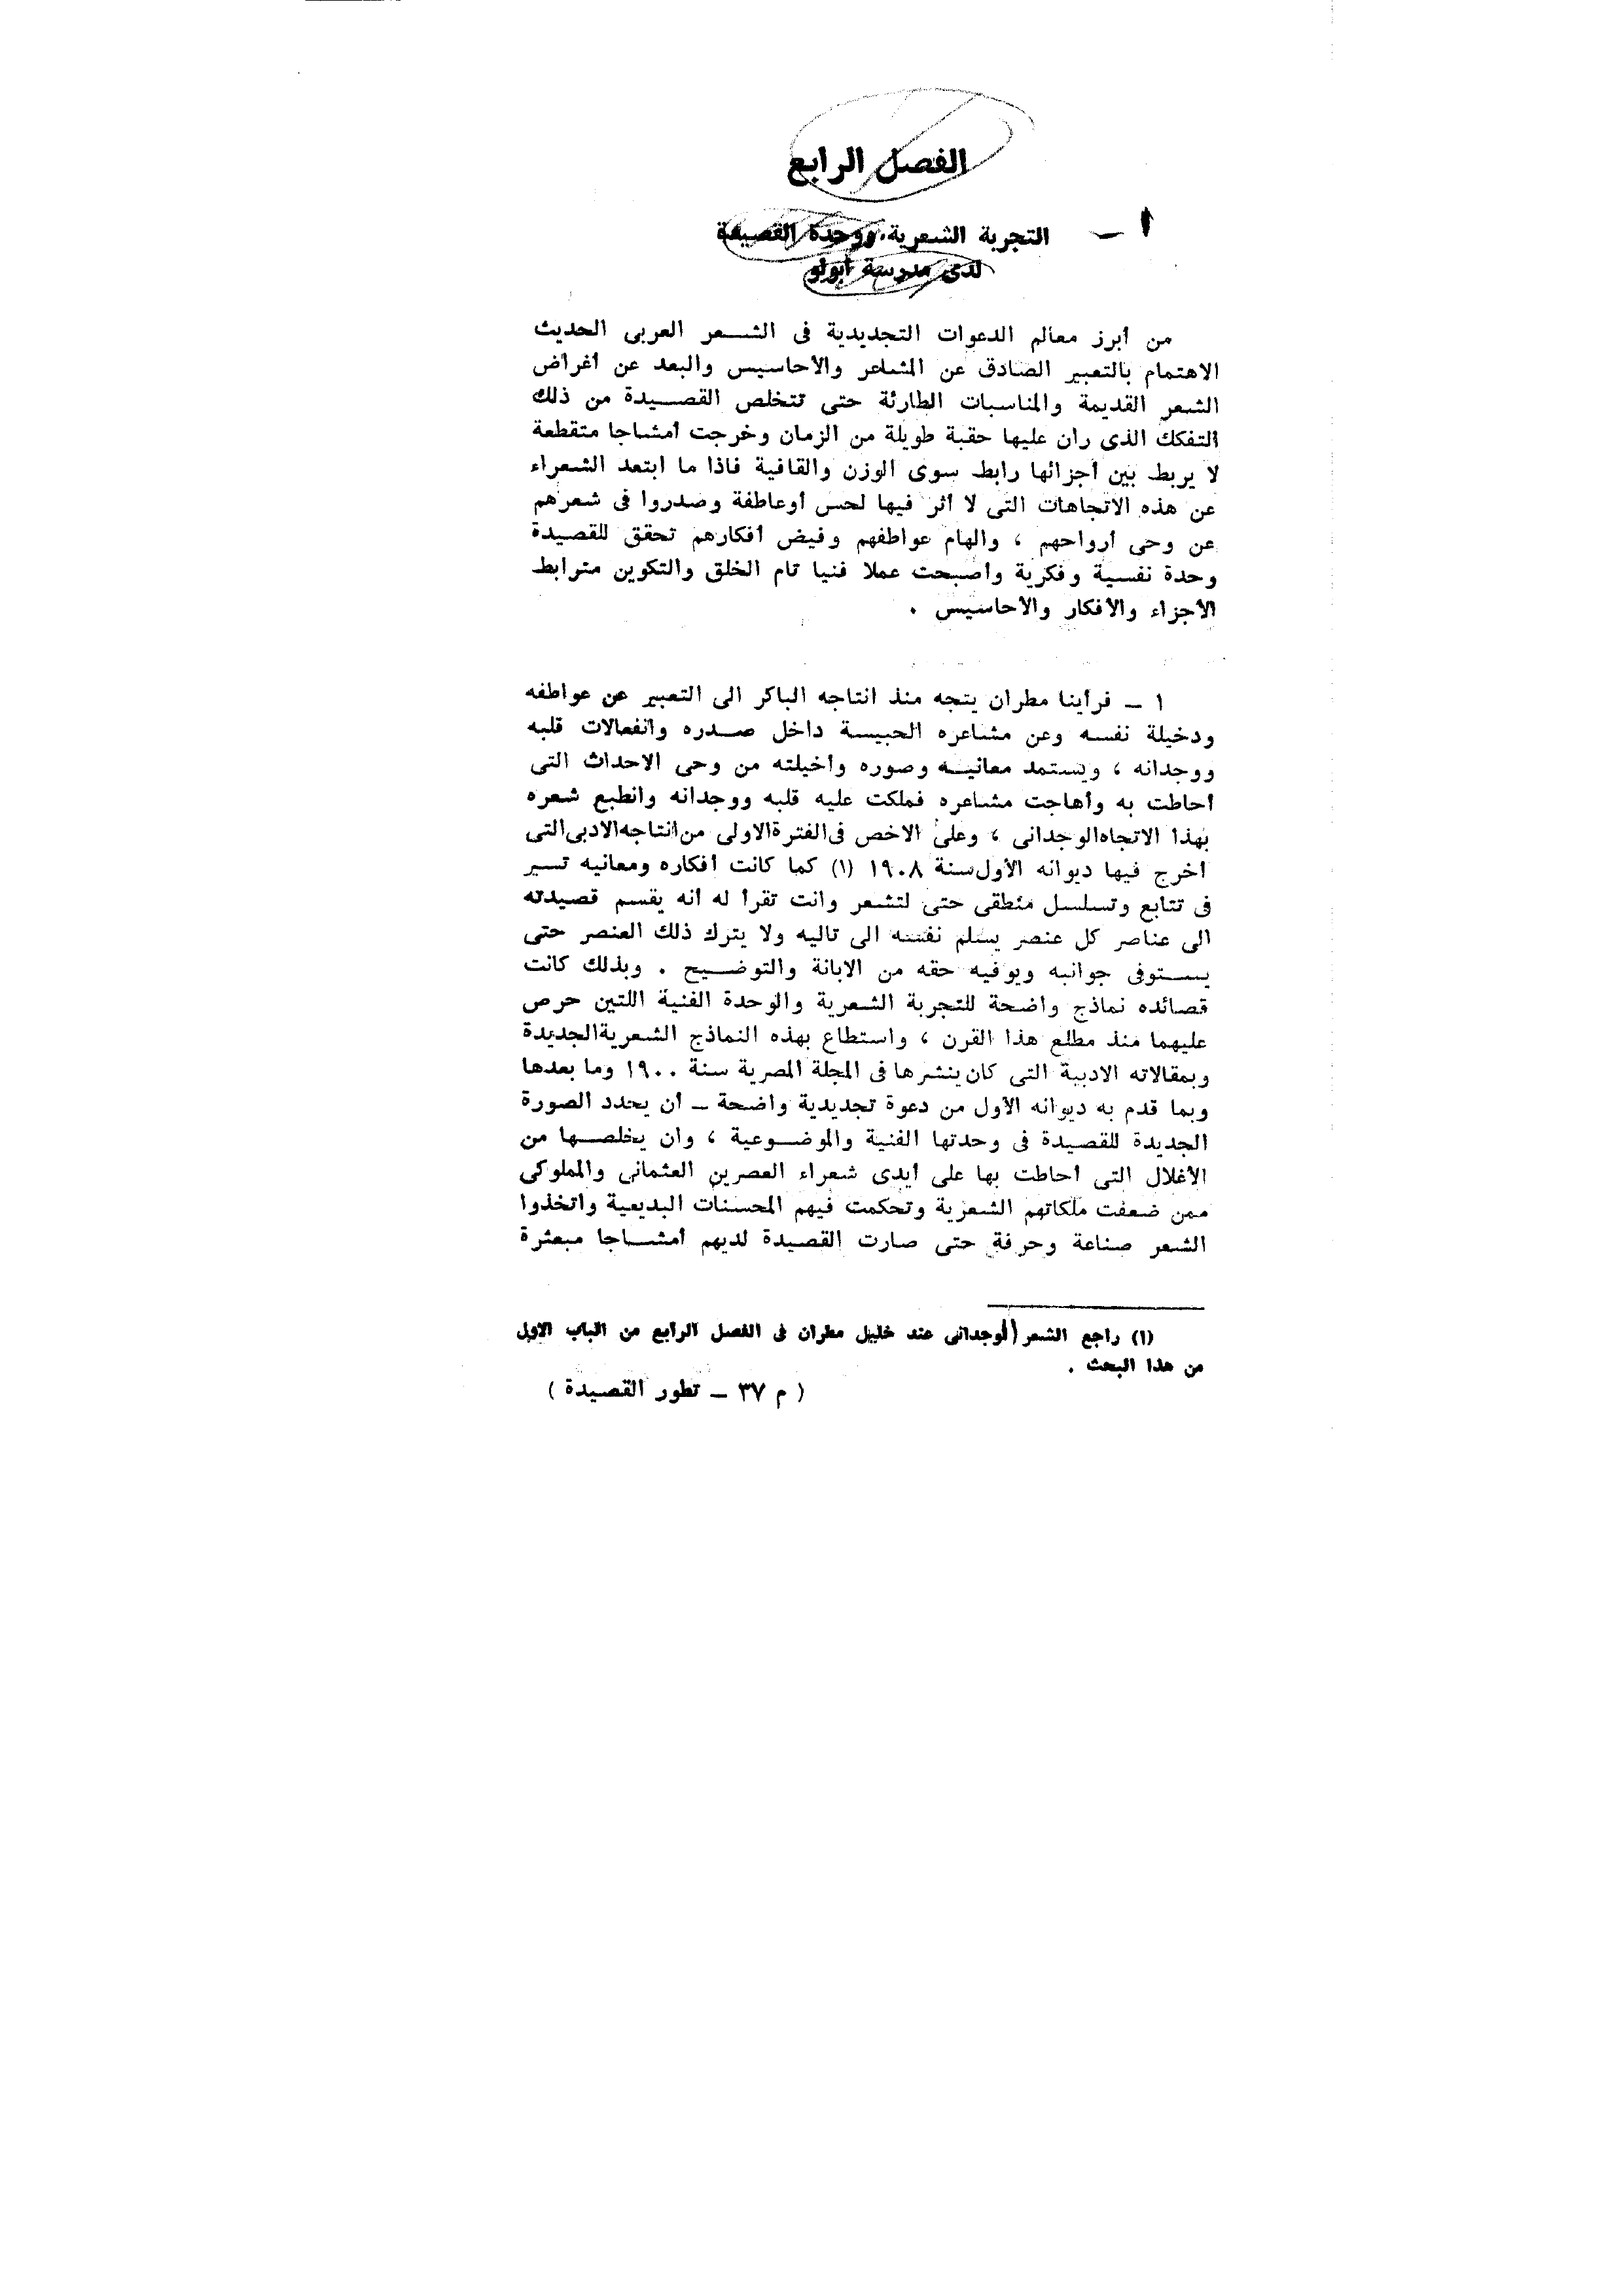 الفصل الرابع
١ –
التجربة الشعرية، ووحدة القصيدة
لدى مدرسة أبولو
من أبرز معالم الدعوات التجديدية فى الشعر العربى الحديث
الاهتمام بالتعبير الصادق عن المشاعر والأحاسيس والبعد عن أغراض
الشعر القديمة والمناسبات الطارئة حتى تتخلص القصيدة من ذلك
التفكك الذى ران عليها حقبة طويلة من الزمان وخرجت أمشاجا متقطعة
لا يربط بين أجزائها رابط سوى الوزن والقافية فاذا ما ابتعد الشعراء
عن هذه الاتجاهات التى لا أثر فيها لحس أوعاطفة وصدروا فى شعرهم
عن وحى أرواحهم ، والهام عواطفهم وفيض أفكارهم تحقق للقصيدة
وحدة نفسية وفكرية وأصبحت عملا فنيا تام الخلق والتكوين مترابط
الأجزاء والأفكار والأحاسيس .
١ – فرأينا مطران يتجه منذ انتاجه الباكر الى التعبير عن عواطفه
ودخيلة نفسه وعن مشاعره الحبيسة داخل صدره وانفعالات قلبه
ووجدانه ، ويستمد معانيه وصوره وأخيلته من وحى الاحداث التى
أحاطت به وأهاجت مشاعره فملكت عليه قلبه ووجدانه وانطبع شعره
بهذا الاتجاه الوجدانى ، وعلى الاخص فى الفترة الاولى من انتاجه الادبى التى
أخرج فيها ديوانه الأول سنة ١٩٠٨ (١) كما كانت أفكاره ومعانيه تسير
فى تتابع وتسلسل منطقى حتى لتشعر وأنت تقرأ له أنه يقسم قصيدته
الى عناصر كل عنصر يسلم نفسه الى تاليه ولا يترك ذلك العنصر حتى
يستوفى جوانبه ويوفيه حقه من الابانة والتوضيح . وبذلك كانت
قصائده نماذج واضحة للتجربة الشعرية والوحدة الفنية اللتين حرص
عليهما منذ مطلع هذا القرن ، واستطاع بهذه النماذج الشعرية الجديدة
وبمقالاته الادبية التى كان ينشرها فى المجلة المصرية سنة ١٩٠٠ وما بعدها
وبما قدم به ديوانه الأول من دعوة تجديدية واضحة – أن يحدد الصورة
الجديدة للقصيدة فى وحدتها الفنية والموضوعية ، وأن يخلصها من
الأغلال التى أحاطت بها على أيدى شعراء العصرين العثمانى والمملوكى
ممن ضعفت ملكاتهم الشعرية وتحكمت فيهم المحسنات البديعية واتخذوا
الشعر صناعة وحرفة حتى صارت القصيدة لديهم أمشاجا مبعثرة
(١) راجع الشعر الوجدانى عند خليل مطران فى الفصل الرابع من الباب الاول
من هذا البحث .
( م ٣٧ – تطور القصيدة )